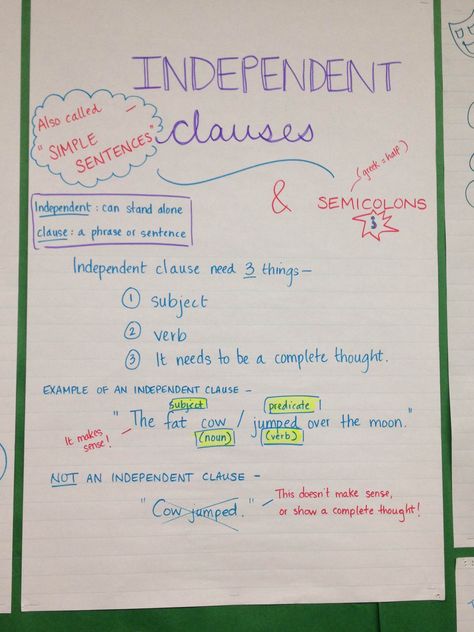 INDEPENDENT
clauses
Also called –
"SIMPLE
SENTENCES"
(greek = half)
& SEMICOLONS
;
Independent : can stand alone
clause : a phrase or sentence
Independent clause need 3 things –
① subject
② verb
③ It needs to be a complete thought.
EXAMPLE OF AN INDEPENDENT CLAUSE –
subject predicate
"The fat cow / jumped over the moon."
(noun) (verb)
It makes
sense!
NOT AN INDEPENDENT CLAUSE –
"Cow jumped."
This doesn't make sense,
or show a complete thought!